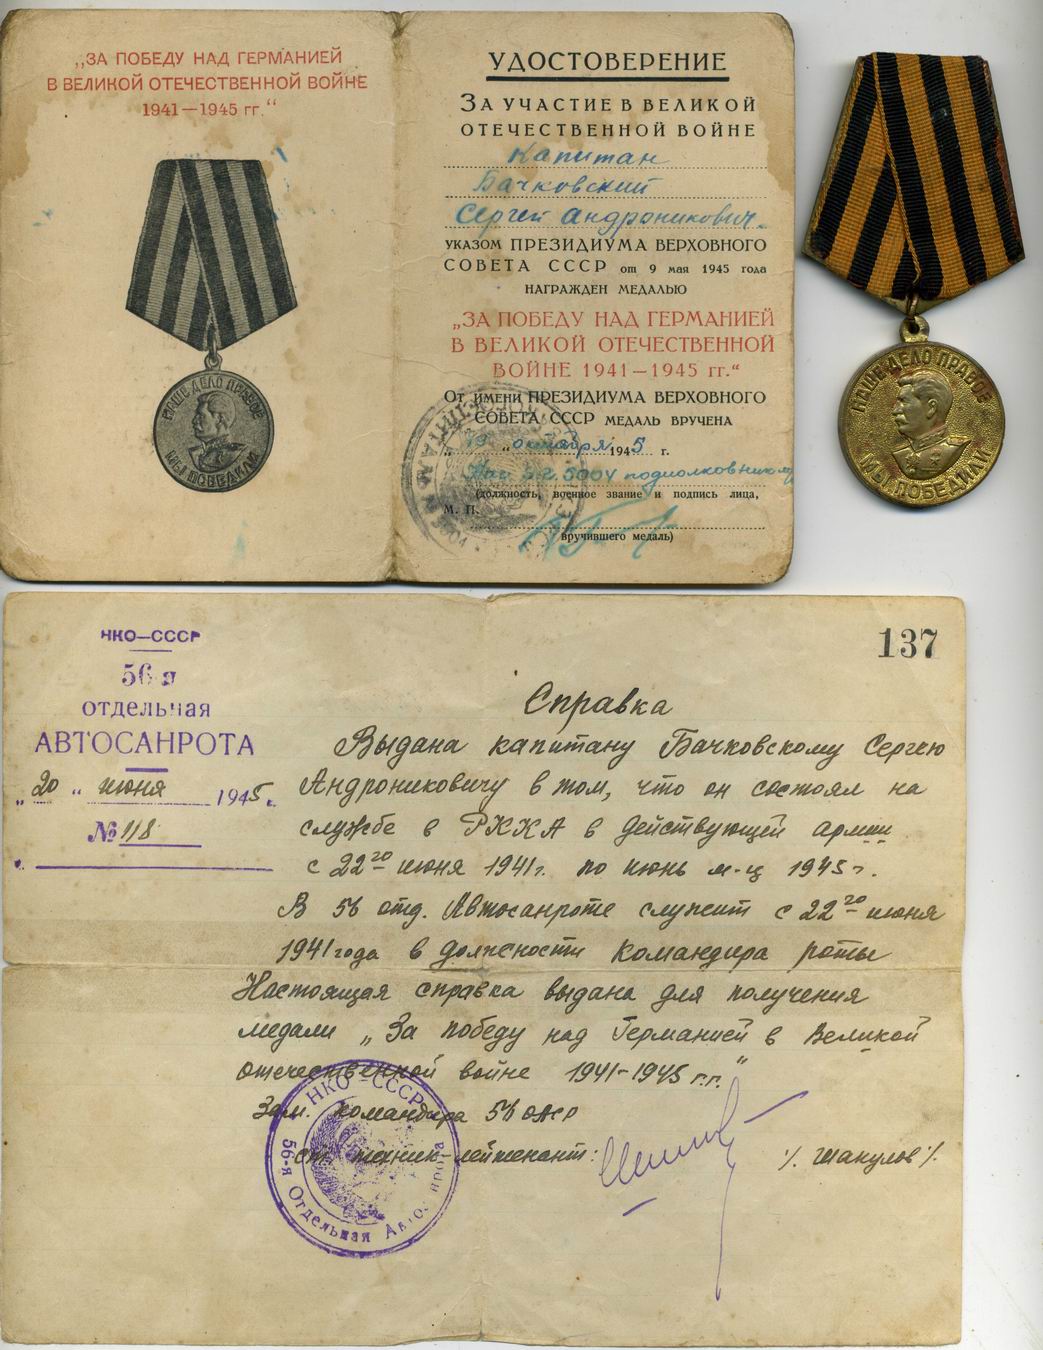 „ЗА ПОБЕДУ НАД ГЕРМАНИЕЙ
В ВЕЛИКОЙ ОТЕЧЕСТВЕННОЙ ВОЙНЕ
1941—1945 гг.“
НАШЕ ДЕЛО ПРАВОЕ
МЫ ПОБЕДИЛИ
УДОСТОВЕРЕНИЕ
ЗА УЧАСТИЕ В ВЕЛИКОЙ
ОТЕЧЕСТВЕННОЙ ВОЙНЕ
Капитан
Бачковский
Сергей Андроникович.
УКАЗОМ ПРЕЗИДИУМА ВЕРХОВНОГО
СОВЕТА СССР от 9 мая 1945 года
НАГРАЖДЕН МЕДАЛЬЮ
„ЗА ПОБЕДУ НАД ГЕРМАНИЕЙ
В ВЕЛИКОЙ ОТЕЧЕСТВЕННОЙ
ВОЙНЕ 1941—1945 гг.“
От имени ПРЕЗИДИУМА ВЕРХОВНОГО
СОВЕТА СССР МЕДАЛЬ ВРУЧЕНА
октября 1945 г.
5004 подполковником
(должность, военное звание и подпись лица,
М. П.
вручившего медаль)
НАШЕ ДЕЛО ПРАВОЕ
МЫ ПОБЕДИЛИ
НКО—СССР
56-я
отдельная
АВТОСАНРОТА
„20“ июня 1945 г.
№ 118
137
Справка
Выдана капитану Бачковскому Сергею
Андрониковичу в том, что он состоял на
службе в РККА в действующей армии
с 22го июня 1941г. по июнь м-ц 1945 г.
В 56 отд. Автосанроте служит с 22го июня
1941 года в должности командира роты
Настоящая справка выдана для получения
медали „За победу над Германией в Великой
отечественной войне 1941-1945 г.г."
Зам. командира 56 ОАСР
ст. техник-лейтенант: /. Шакулов ./.
НКО - СССР
56-я Отдельная Автосанрота